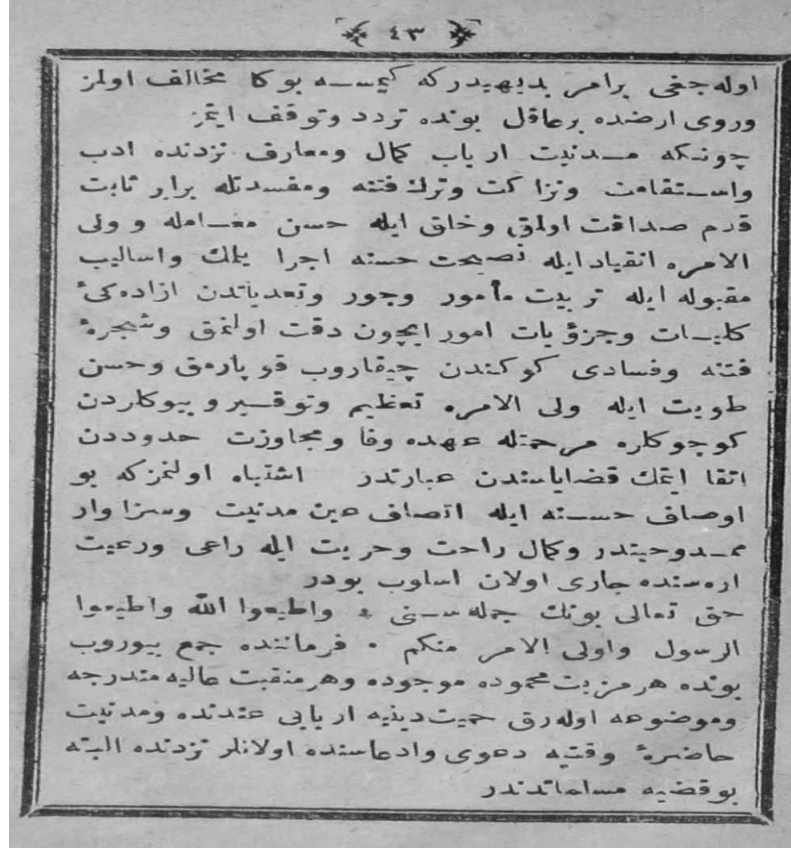 ٤٣
اوله‌جغی برامر بدیهیدرکه کیمسه بوکا مخالف اولمز
وروی ارضده برعاقل بونده تردد وتوقف ایتمز
چونکه مدنیت ارباب کمال ومعارف نزدنده ادب
واستقامت ونزاکت وترك فتنه ومفسدتله برابر ثابت
قدم صداقت اولمق وخلق ایله حسن معامله و ولی
الامره انقیاد ایله نصیحت حسنه اجرا یلمك واسالیب
مقبوله ایله تربیت مأمور وجور وتعدیاتدن ازاده‌کیٔ
کلیات وجزؤیات امور ایچون دقت اولنمق وشجرهٔ
فتنه وفسادی کوکندن چیقاروب قوپارمق وحسن
طویت ایله ولی الامره تعظیم وتوقیر و بیوکلردن
کوچوکلره مرحمتله عهده وفا ومجاوزت حدوددن
اتقا ایتمك قضایاسندن عبارتدر اشتباه اولنمزکه بو
اوصاف حسنه ایله اتصاف عین مدنیت وسزاوار
ممدوحیتدر وکمال راحت وحریت ایله راعی ورعیت
اره‌سنده جاری اولان اسلوب بودر
حق تعالی بونك جمله‌سنی ﴿ واطیعوا الله واطیعوا
الرسول واولی الامر منکم ﴾ فرماننده جمع بیوروب
بونده هرمزیت محموده موجوده وهرمنقبت عالیه مندرجه
وموضوعه اوله‌رق حمیت دینیه اربابی عندنده ومدنیت
حاضرهٔ وقتیه دعوی وادعاسنده اولانلر نزدنده البته
بوقضیه مسلماتدندر